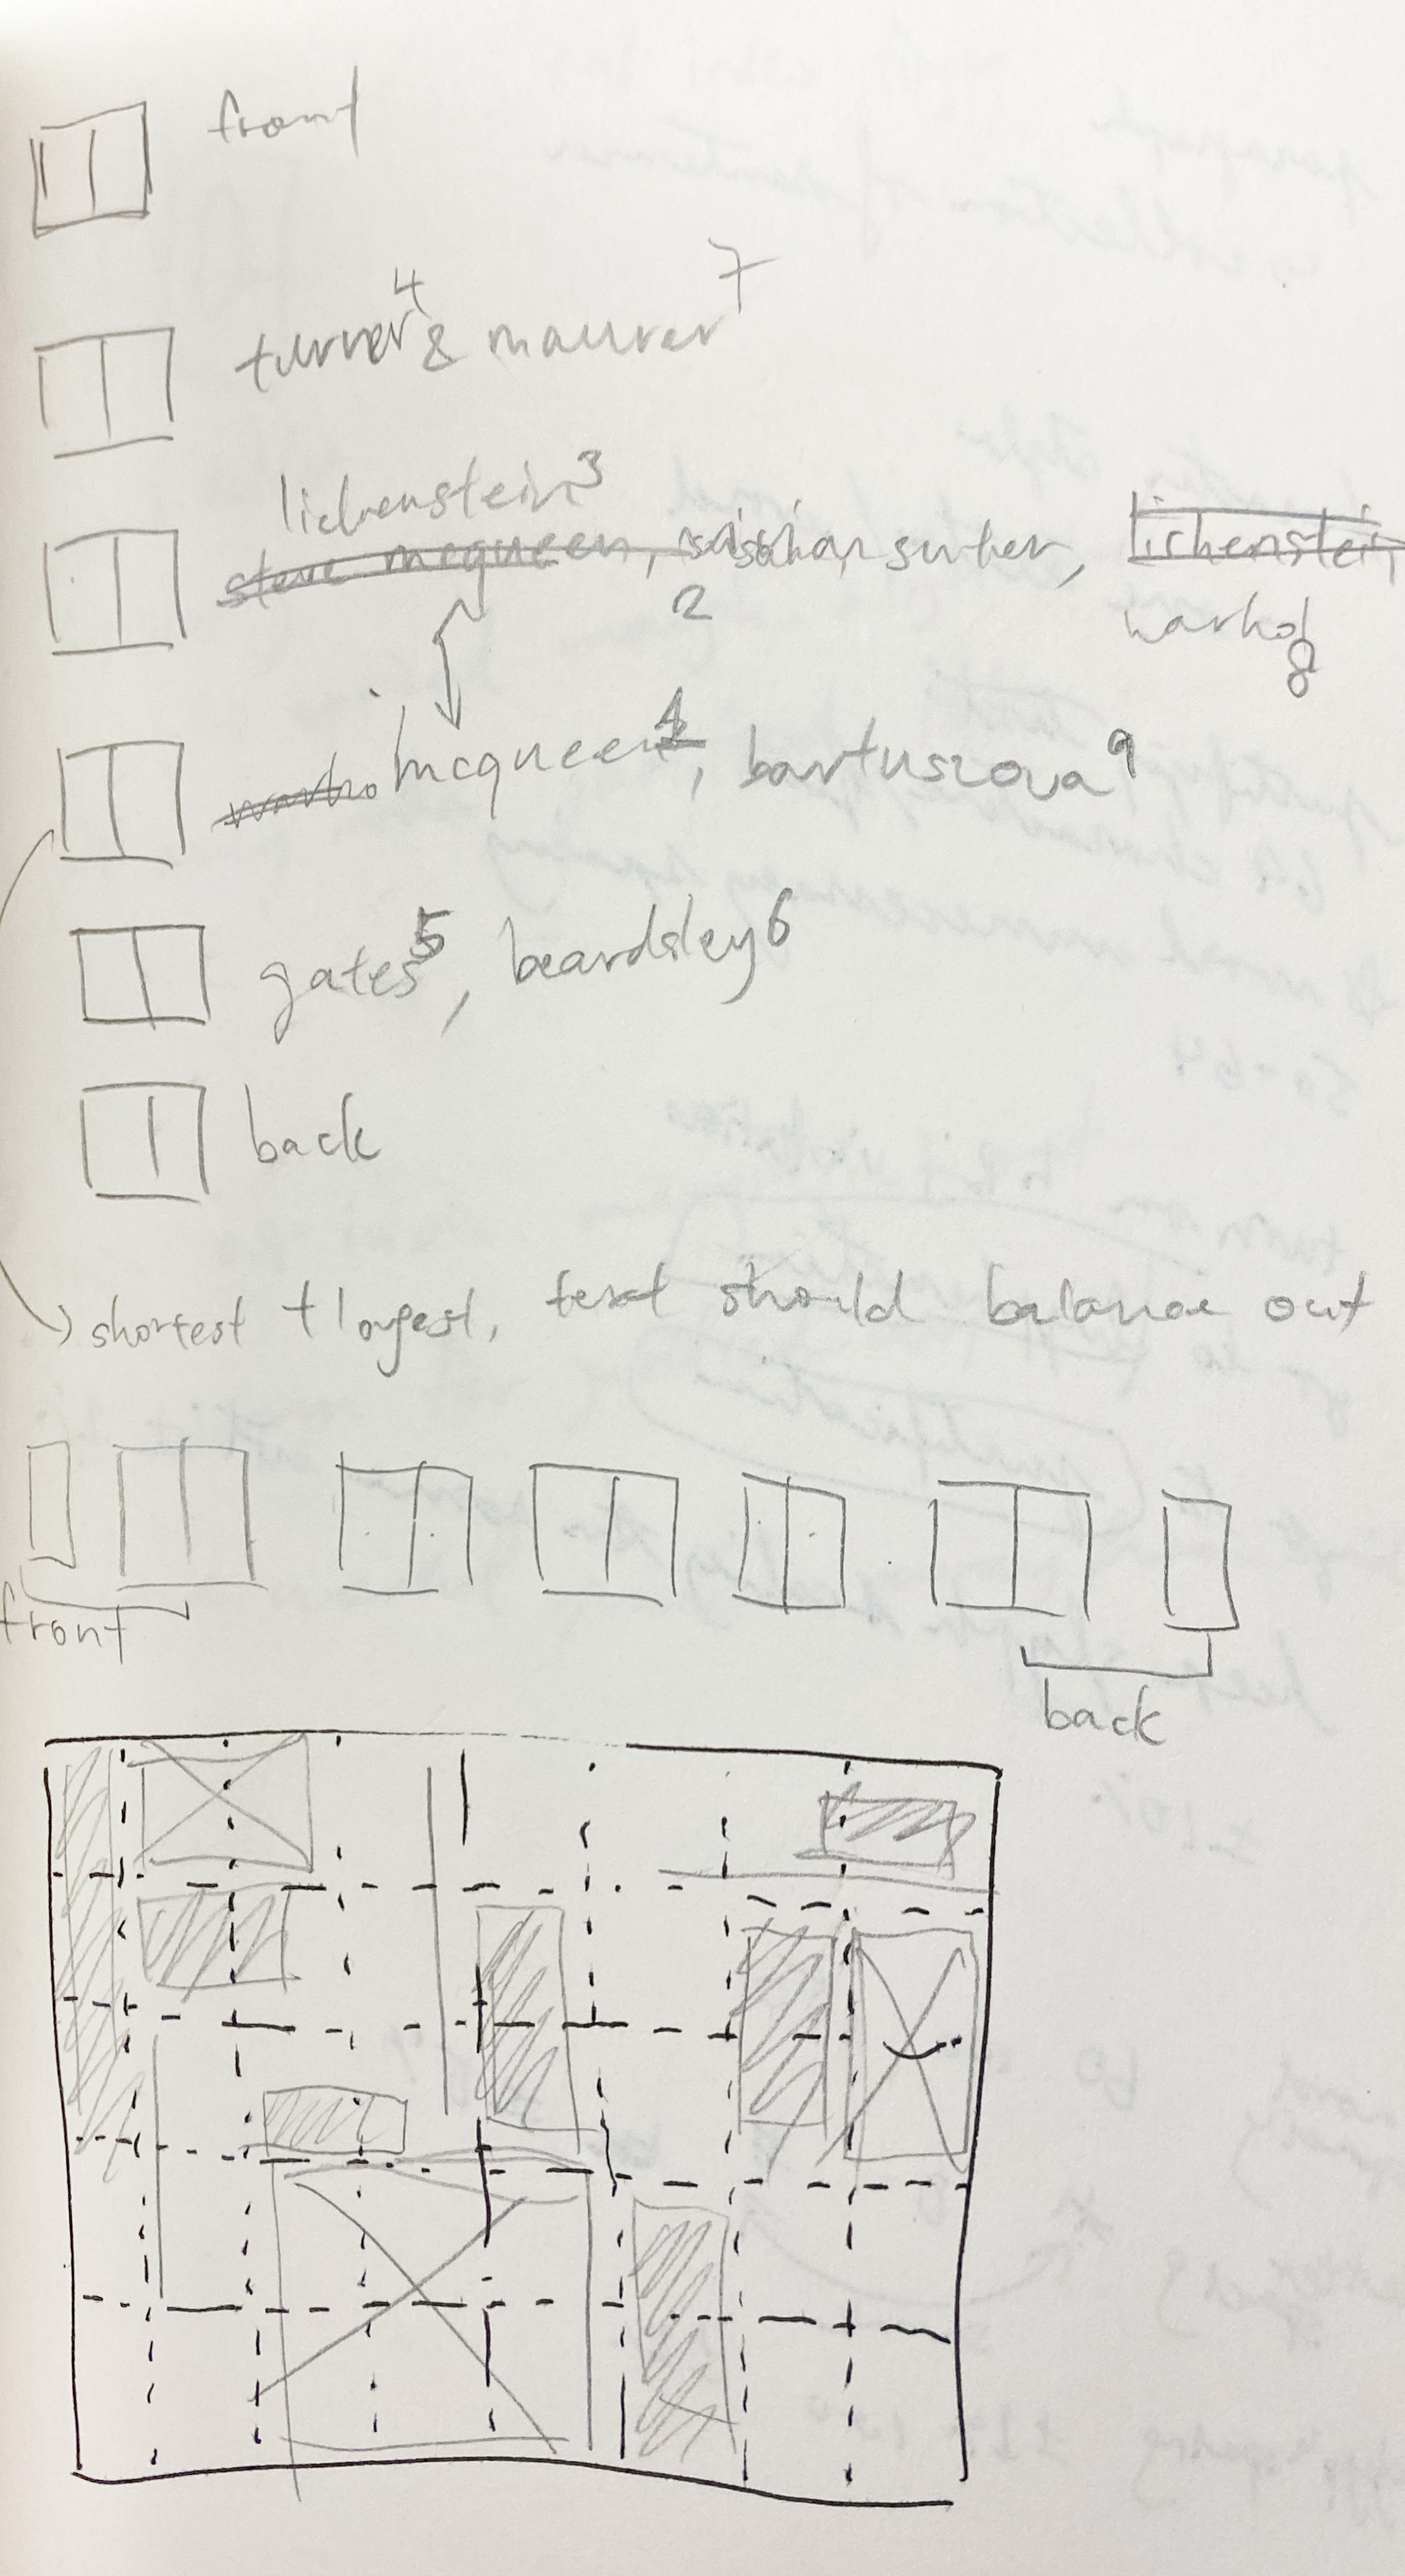 front
turner 4 & maurer 7
lichenstein 3
steve mcqueen, suter, lichenstein
2 warhol 8
warho mcqueen 1, bartuszova 9
gates 5, beardsley 6
back
shortest + logest, text should balance out
front
back